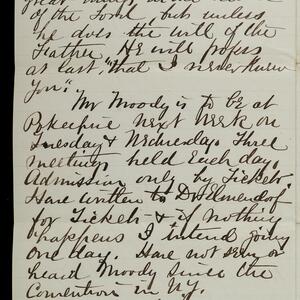 great many
of the Lord, but unless
he does the will of the
Father He will profess
at last, "that I never knew
you."
Mr Moody is to be at
Pokeepsie next week on
Tuesday & Wednesday. Three
meetings held Each day,
Admission only by Tickets,
Have written to Dr Elmendorf
for Tickets & if nothing
happens I intend going
one day. Have not seen or
heard Moody since the
Convention in N.Y.